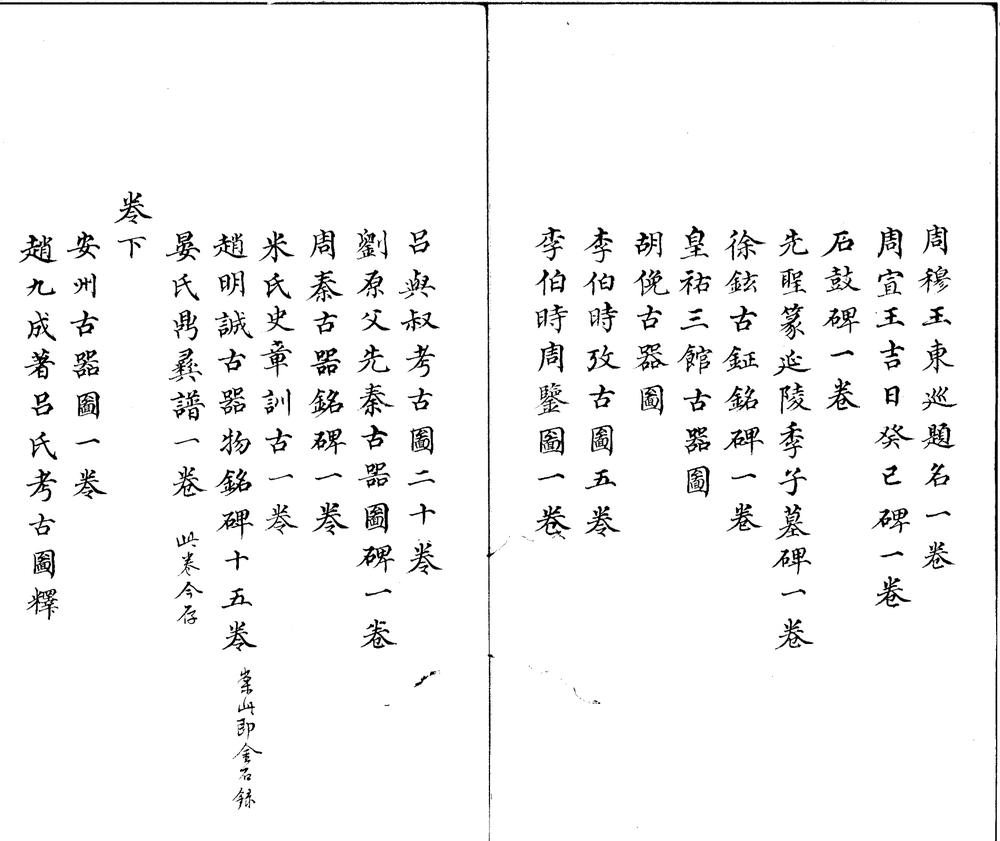 周穆王東巡題名一卷
周宣王吉日癸巳碑一卷
石鼓碑一卷
先聖篆延陵季子墓碑一卷
徐鉉古鉦銘碑一卷
皇祐三館古器圖
胡俛古器圖
李伯時攷古圖五卷
李伯時周鑒圖一卷
呂與叔考古圖二十卷
劉原父先秦古器圖碑一卷
周秦古器銘碑一卷
米氏史章訓古一卷
趙明誠古器物銘碑十五卷 案此即金石錄
晏氏鼎彝譜一卷 此卷今存
卷下
安州古器圖一卷
趙九成著呂氏考古圖釋